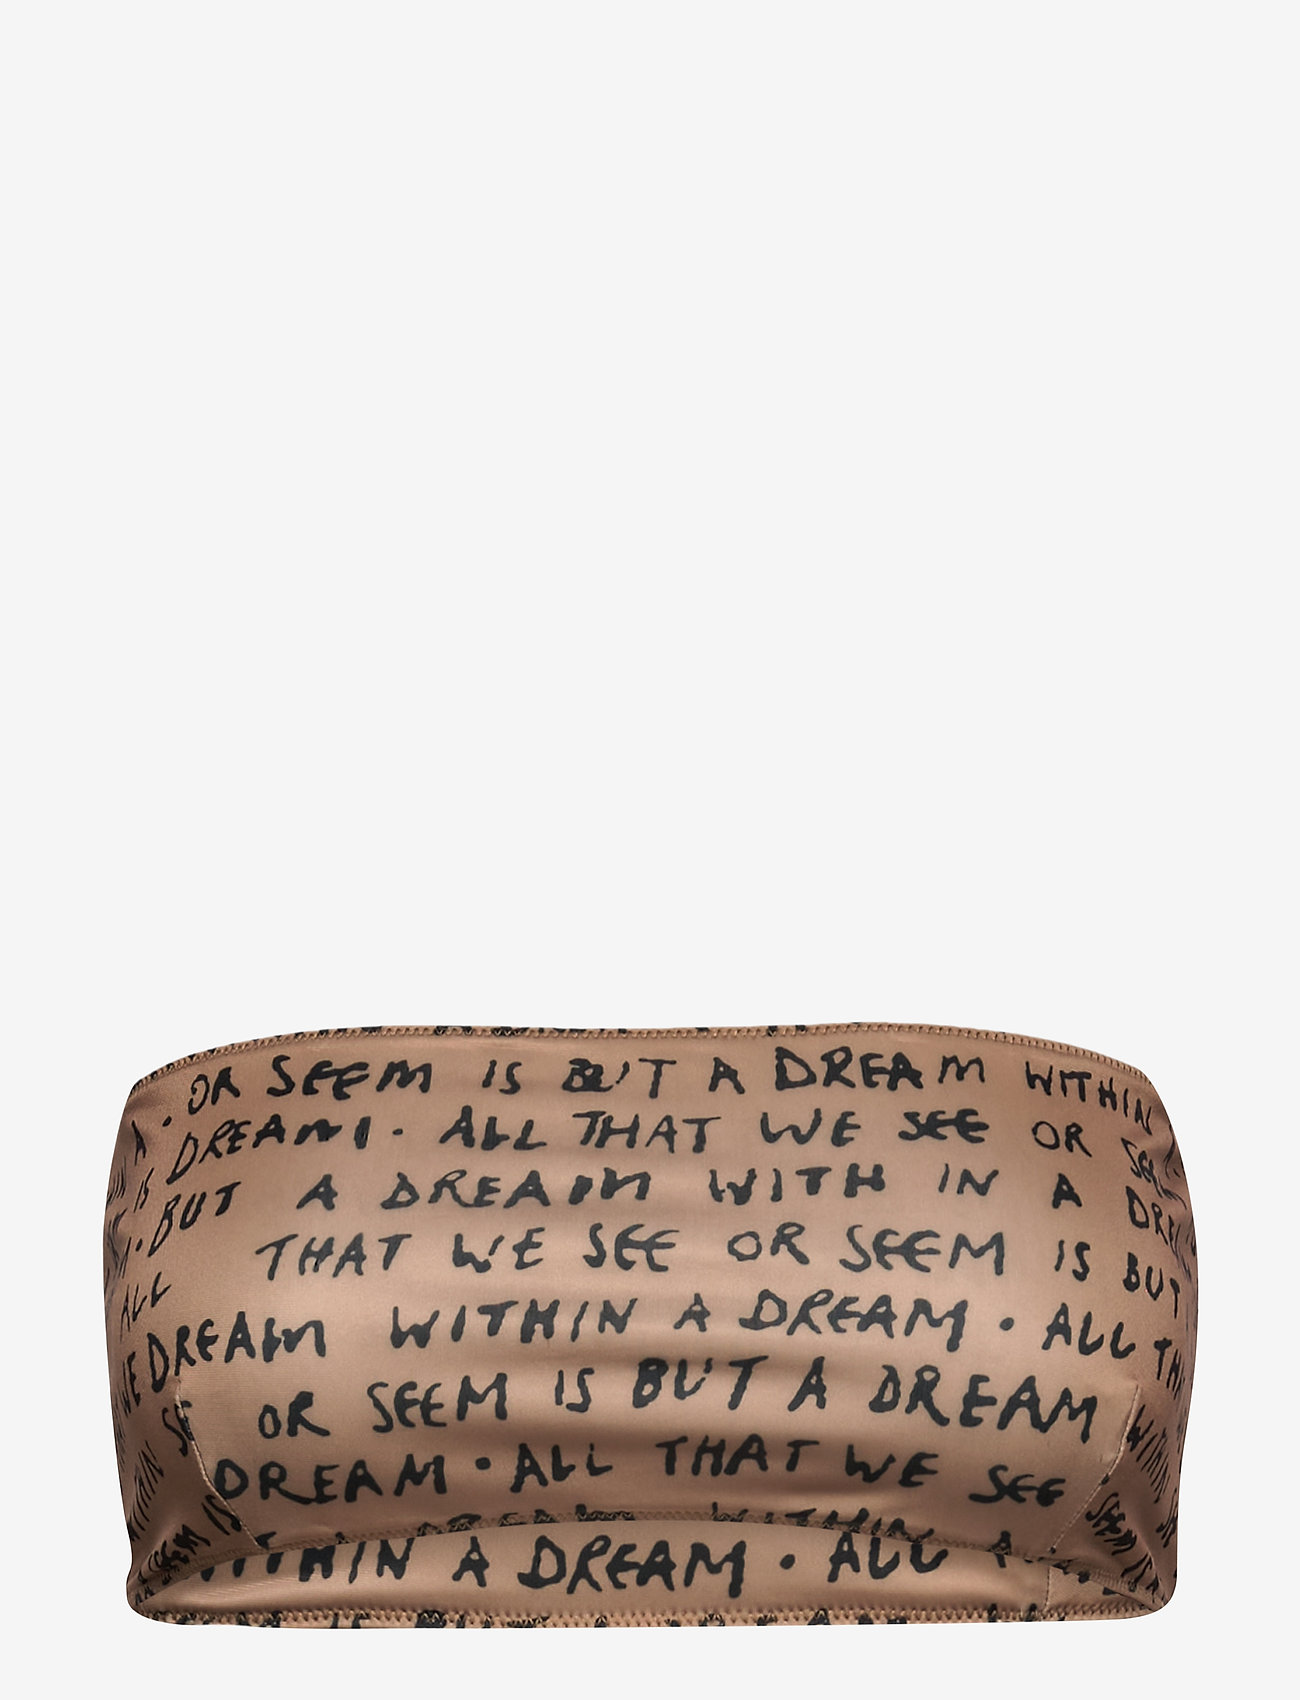 OR SEEM IS BUT A DREAM WITHIN
IS DREAM. ALL THAT WE SEE OR SEE
BUT A DREAM WITH IN A DRE
ALL THAT WE SEE OR SEEM IS BUT
WE DREAM WITHIN A DREAM . ALL TH
SE OR SEEM IS BUT A DREAM WITHIN
WITHIN DREAM . ALL THAT WE SEE SEEM
SEEM IS WITHIN A DREAM . ALL